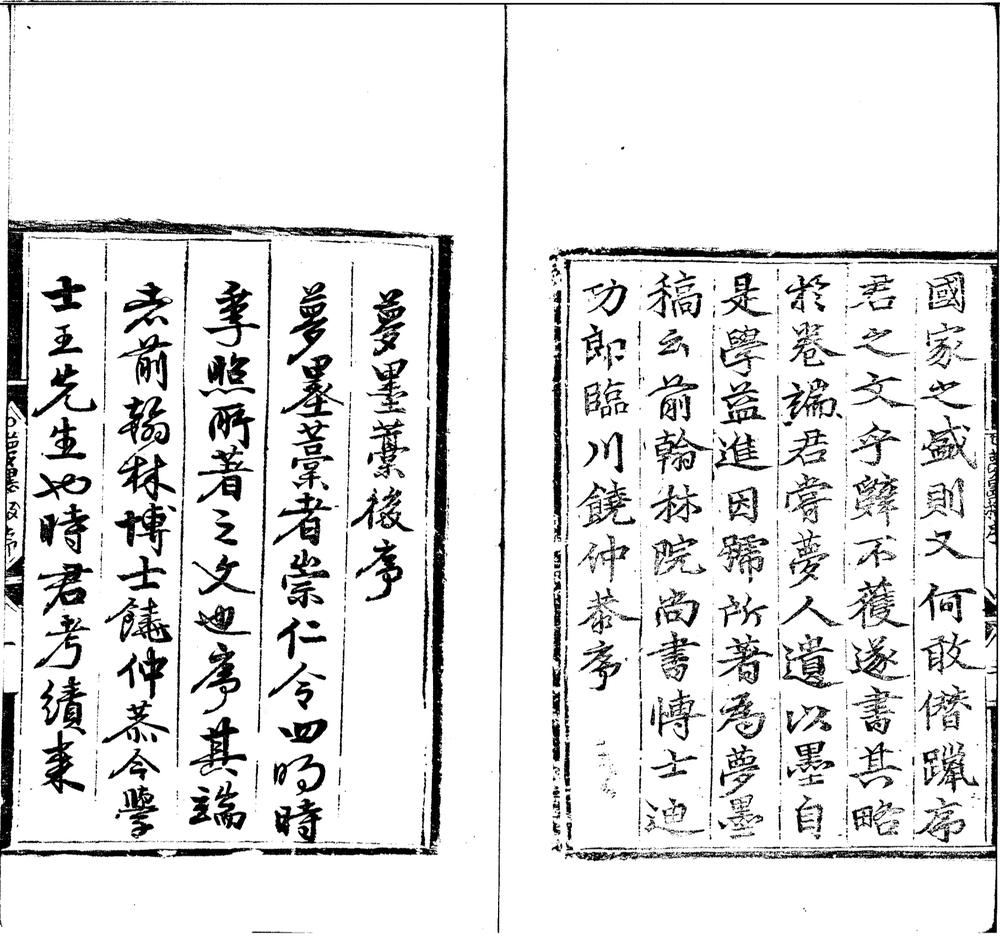 國家之盛則又何敢僭躐序
君之文乎辭不獲遂書其略
於卷端君嘗夢人遺以墨自
是學益進因號所著為夢墨
稿云前翰林院尚書博士迪
功郎臨川饒仲恭序
夢墨藳後序
夢墨藳者崇仁令四明時
季照所著之文也序其端
者前翰林博士饒仲恭今學
士王先生也時君考績来